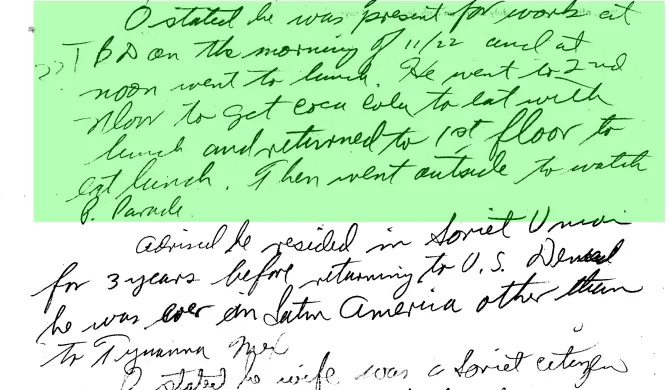 O stated he was present for work at
TBD on the morning of 11/22 and at
noon went to lunch. He went to 2nd
floor to get Coca Cola to eat with
lunch and returned to 1st floor to
eat lunch. Then went outside to watch
P. Parade
advised he resided in Soviet Union
for 3 years before returning to U.S. Denied
he was ever in Latin America other than
to Tijuana Mex
O stated he wife was a Soviet citizen